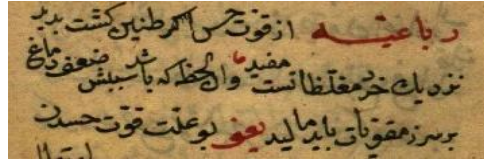 رباعیه از قوت حس اگر طنین گشت پدید
نزدیک خرد مغلظاتست مفید وان لحظه که باشد سببش ضعف دماغ
بر سر ز مقویات باید مالید یعنی بو علت قوت حسدن